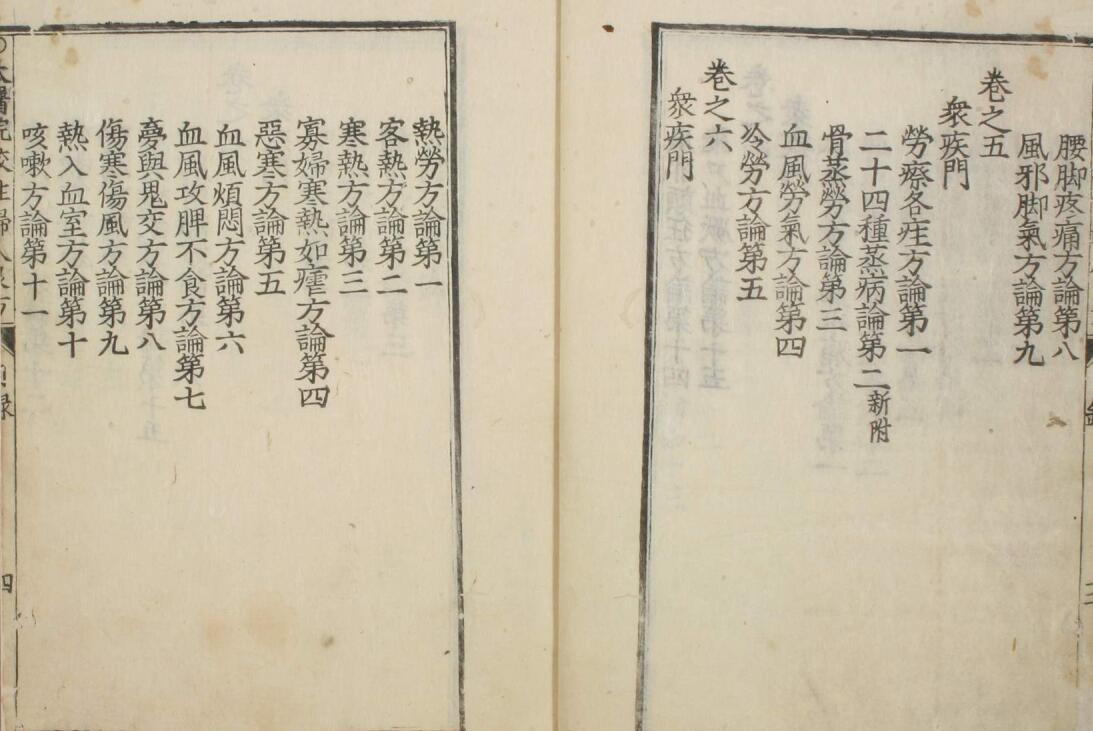 腰脚疼痛方論第八
風邪脚氣方論第九
卷之五
衆疾門
勞瘵各疰方論第一
二十四種蒸病論第二新附
骨蒸勞方論第三
血風勞氣方論第四
冷勞方論第五
卷之六
衆疾門
熱勞方論第一
客熱方論第二
寒熱方論第三
寡婦寒熱如瘧方論第四
惡寒方論第五
血風煩悶方論第六
血風攻脾不食方論第七
夣與鬼交方論第八
傷寒傷風方論第九
熱入血室方論第十
咳嗽方論第十一
醫院校註婦人良方
目録
四